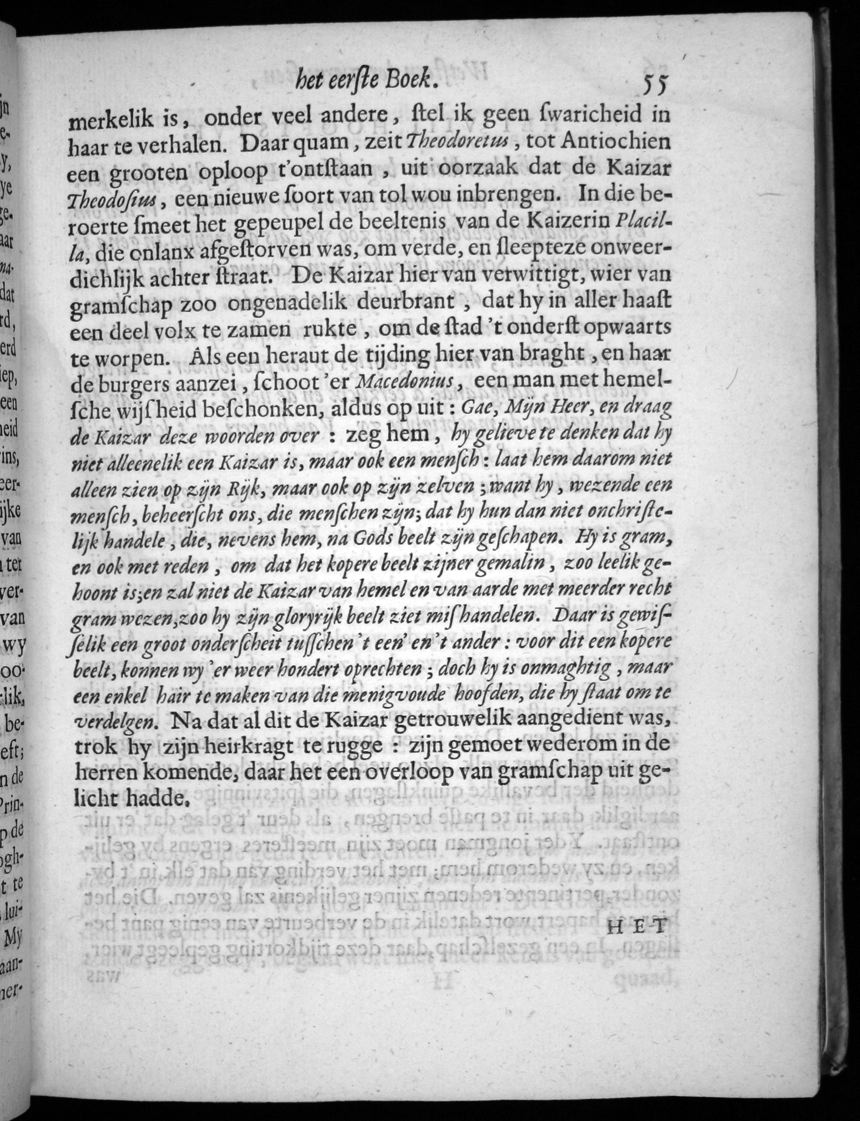 het eerſte Boek. 55
merkelik is, onder veel andere, ſtel ik geen ſwaricheid in
haar te verhalen. Daar quam, zeit Theodoretus, tot Antiochien
een grooten oploop t'ontſtaan, uit oorzaak dat de Kaizar
Theodoſius, een nieuwe ſoort van tol wou inbrengen. In die be-
roerte ſmeet het gepeupel de beeltenis van de Kaizerin Placil-
la, die onlanx afgeſtorven was, om verde, en ſleepteze onweer-
dichlijk achter ſtraat. De Kaizar hier van verwittigt, wier van
gramſchap zoo ongenadelik deurbrant, dat hy in aller haaſt
een deel volx te zamen rukte, om de ſtad 't onderſt opwaarts
te worpen. Als een heraut de tijding hier van braght, en haar
de burgers aanzei, ſchoot 'er Macedonius, een man met hemel-
ſche wijſheid beſchonken, aldus op uit: Gae, Mijn Heer, en draag
de Kaizar deze woorden over: zeg hem, hy gelieve te denken dat hy
niet alleenelik een Kaizar is, maar ook een menſch: laat hem daarom niet
alleen zien op zijn Rijk, maar ook op zijn zelven; want hy, wezende een
menſch, beheerſcht ons, die menſchen zijn; dat hy hun dan niet onchriſte-
lijk handele, die, nevens hem, na Gods beelt zijn geſchapen. Hy is gram,
en ook met reden, om dat het kopere beelt zijner gemalin, zoo leelik ge-
hoont is; en zal niet de Kaizar van hemel en van aarde met meerder recht
gram wezen, zoo hy zijn gloryrijk beelt ziet miſhandelen. Daar is gewiſ-
ſelik een groot onderſcheit tuſſchen 't een' en 't ander: voor dit een kopere
beelt, konnen wy 'er weer hondert oprechten; doch hy is onmaghtig, maar
een enkel hair te maken van die menigvoude hoofden, die hy ſtaat om te
verdelgen. Na dat al dit de Kaizar getrouwelik aangedient was,
trok hy zijn heirkragt te rugge: zijn gemoet wederom in de
herren komende, daar het een overloop van gramſchap uit ge-
licht hadde.
HET